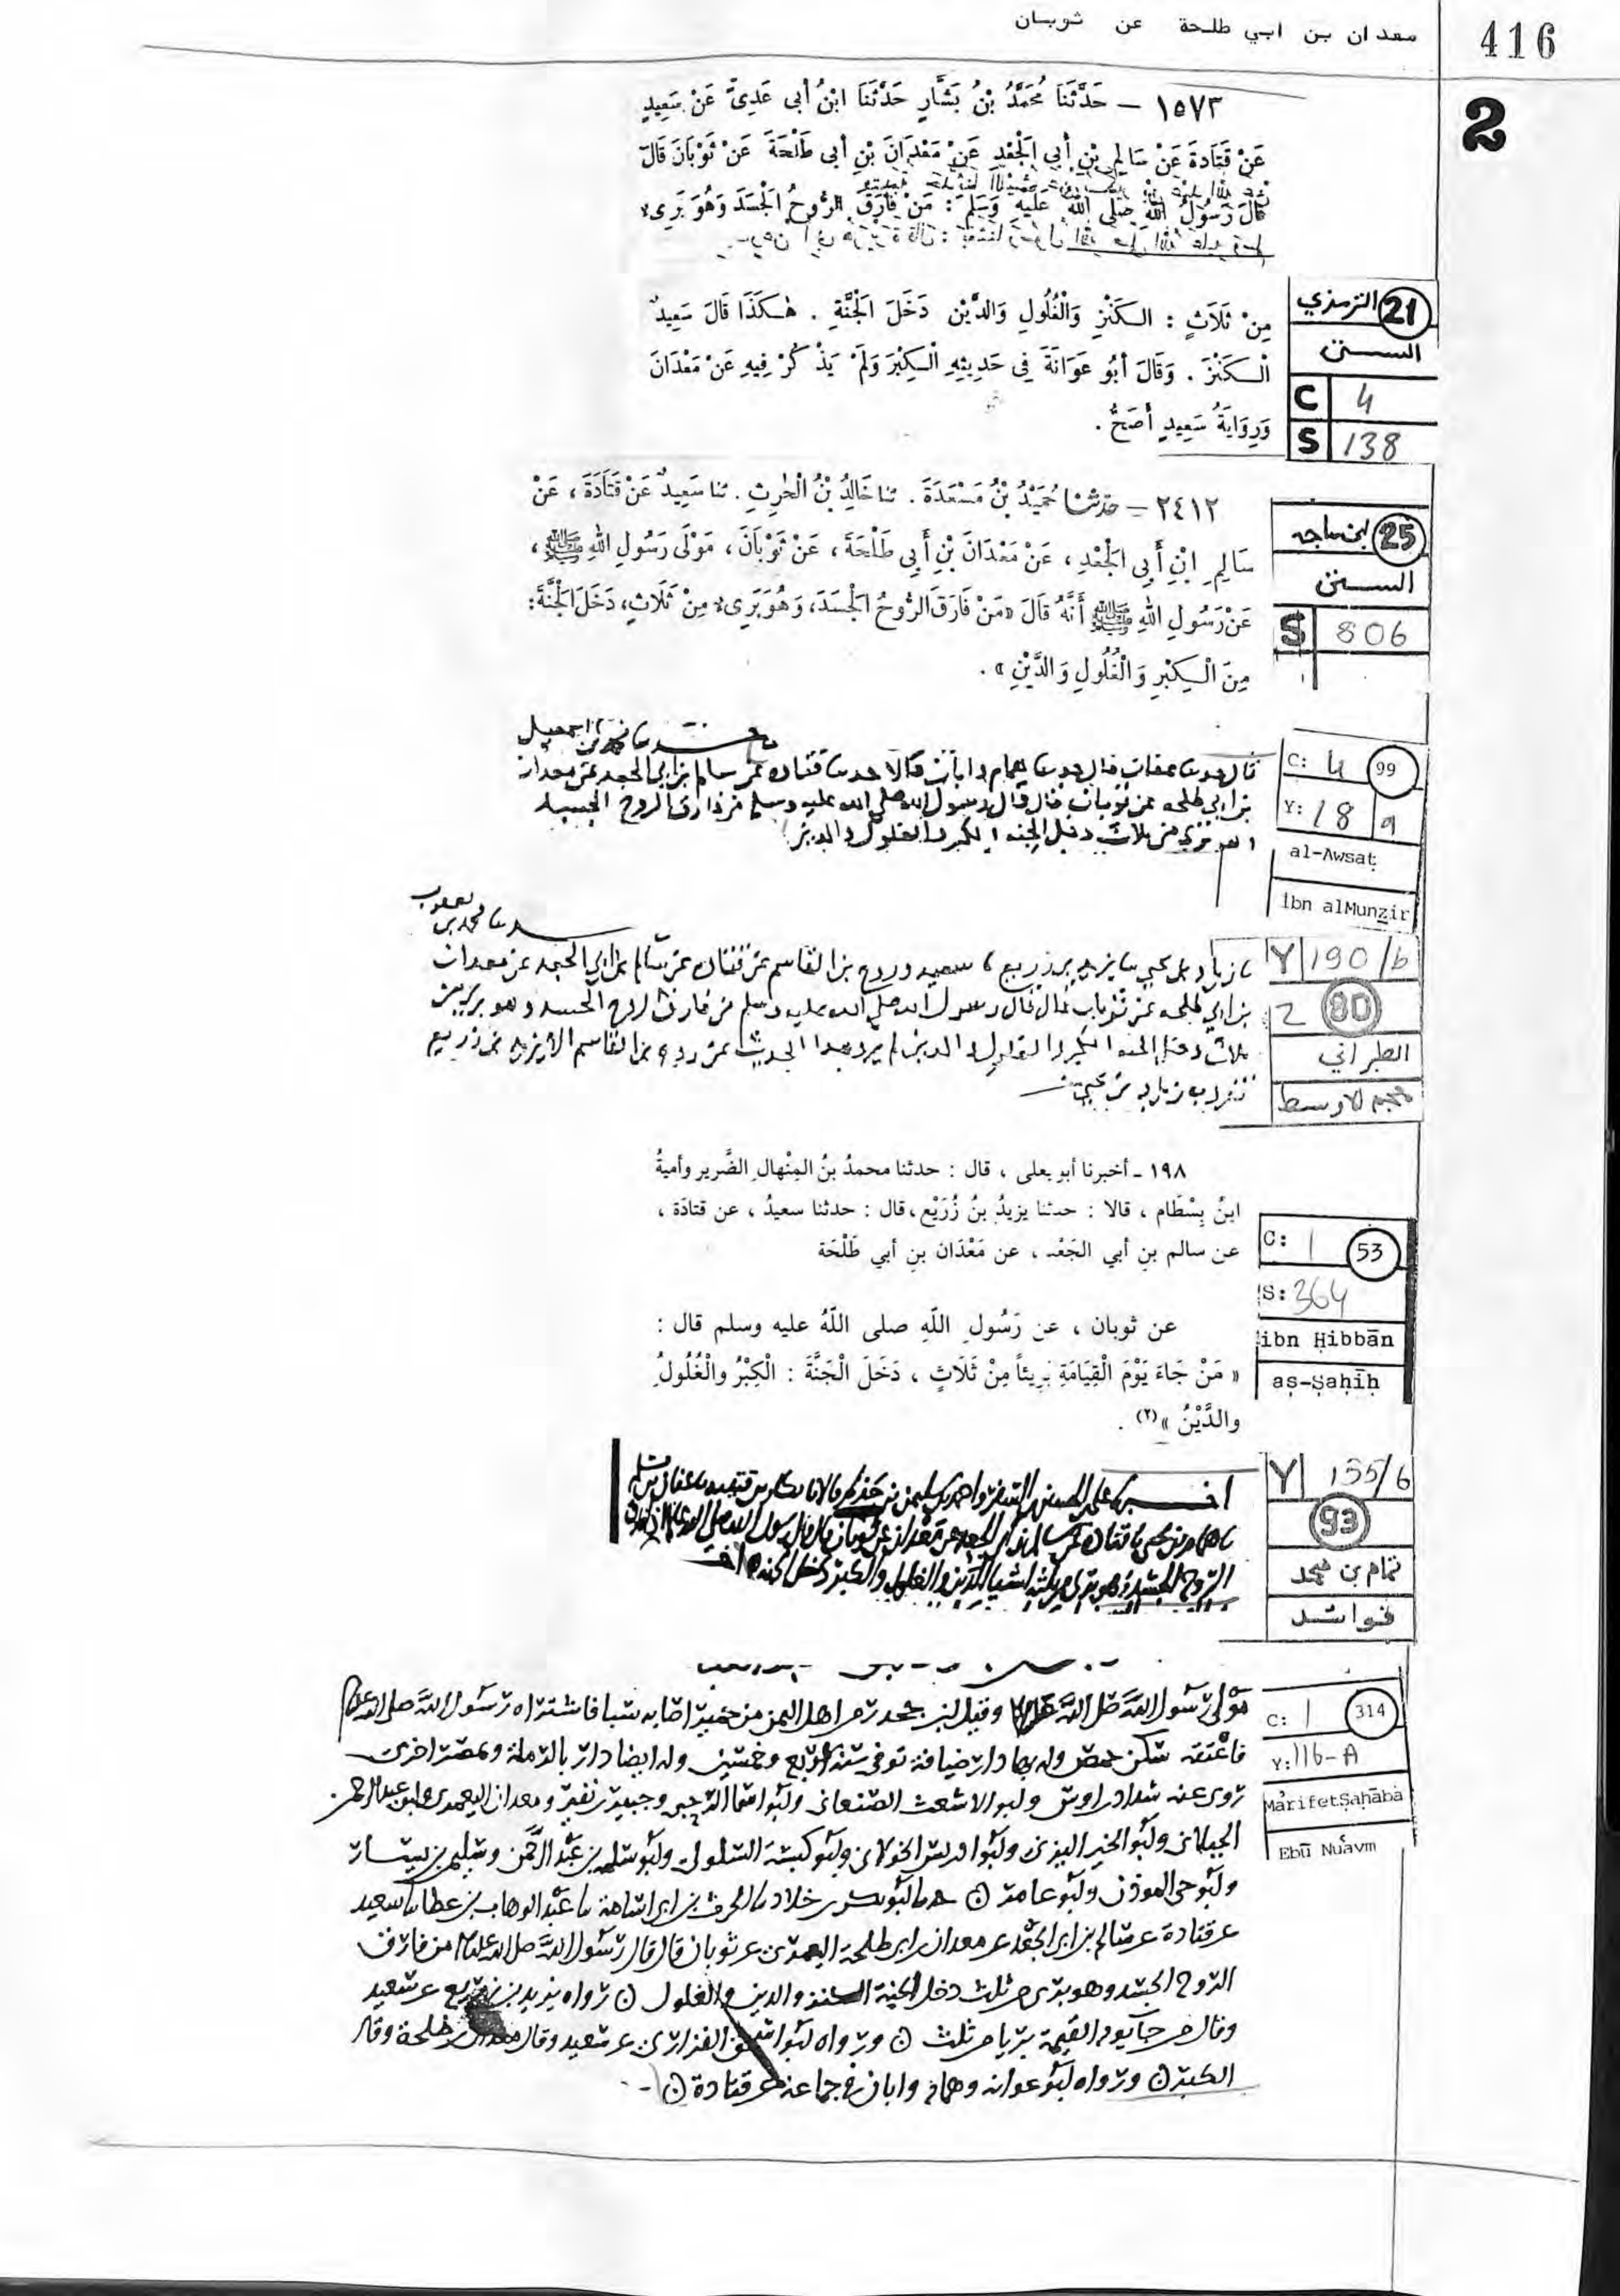 معدان بن ابي طلحة عن ثوبان
416
2
١٥٧٣ – حَدَّثَنَا مُحَمَّدُ بْنُ بَشَّارٍ حَدَّثَنَا ابْنُ أبى عَدِىٍّ عَنْ سَعِيدٍ
عَنْ قَتَادَةَ عَنْ سَالِمِ بْنِ أبى الْجَعْدِ عَنْ مَعْدَانَ بْنِ أبى طَلْحَةَ عَنْ ثَوْبَانَ قَالَ
قَالَ رَسُولُ اللهِ صلى اللهُ عَلَيْهِ وَسَلَّمَ : مَنْ فَارَقَ الرُّوحُ الْجَسَدَ وَهُوَ بَرِىءٌ
مِنْ ثَلَاثٍ : الْكَنْزِ وَالْغُلُولِ وَالدَّيْنِ دَخَلَ الْجَنَّةِ . هٰكَذَا قَالَ سَعِيدٌ
الْكَنْزَ . وَقَالَ أبُو عَوَانَةَ فِى حَدِيثِهِ الْكِبْرَ وَلَمْ يَذْكُرْ فِيهِ عَنْ مَعْدَانَ
وَرِوَايَةُ سَعِيدٍ أصَحُّ .
21 الترمذي
السنن
C 4
S 138
٢٤١٢ – حدّثنا حُمَيْدُ بْنُ مَسْعَدَةَ . ثنا خَالِدُ بْنُ الْحٰرِثِ . ثنا سَعِيدٌ عَنْ قَتَادَةَ ، عَنْ
سَالِمِ ابْنِ أَبِى الْجَعْدِ ، عَنْ مَعْدَانَ بْنِ أَبِى طَلْحَةَ ، عَنْ ثَوْبَانَ ، مَوْلَى رَسُولِ اللهِ ﷺ ،
عَنْ رَسُولِ اللهِ ﷺ أَنَّهُ قَالَ « مَنْ فَارَقَ الرُّوحُ الْجَسَدَ ، وَهُوَ بَرِىءٌ مِنْ ثَلَاثٍ ، دَخَلَ الْجَنَّةَ :
مِنَ الْكِبْرِ وَالْغُلُولِ وَالدَّيْنِ » .
25 ابن ماجه
السنن
S 806
قال حدثنا عفان قال حدثنا همام وابان قالا حدثنا قتاده عن سالم بن ابي الجعد عن معدان
بن ابي طلحه عن ثوبان قال قال رسول الله صلى الله عليه وسلم من فارق الروح الجسد
وهو بري من ثلاث دخل الجنه الكبر والغلول والدين
C: 4 99
Y: 18 a
al-Awsaṭ
ibn alMunẓir
سعيد وروح بن القاسم عن قتاده عن سالم بن ابي الجعد عن معدان
بن ابي طلحه عن ثوبان قال قال رسول الله صلى الله عليه وسلم من فارق الروح الجسد وهو بري من
ثلاث دخل الجنه الكبر والغلول والدين لم يرو هذا الحديث عن روح بن القاسم الا يزيد بن زريع
تفرد به زياد بن يحيى
Y 190/b
2 80
الطبراني
معجم الاوسط
١٩٨ ـ أخبرنا أبو يعلى ، قال : حدثنا محمدُ بنُ المِنْهالِ الضَّرير وأميةُ
ابنُ بِسْطَام ، قالا : حدثنا يزيدُ بنُ زُرَيْع ، قال : حدثنا سعيدُ ، عن قتادَة ،
عن سالم بنِ أبي الجَعْد ، عن مَعْدَان بنِ أبي طَلْحَة
عن ثوبان ، عن رَسُولِ اللّهِ صلى اللّهُ عليه وسلم قال :
« مَنْ جَاءَ يَوْمَ الْقِيَامَةِ بَرِيئاً مِنْ ثَلَاثٍ ، دَخَلَ الْجَنَّةَ : الْكِبْرُ والْغُلُولُ
والدَّيْنُ »(٢) .
C: 1 53
S: 364
ibn Ḥibbān
aṣ-Ṣaḥīḥ
الروح الجسد وهو بري من ثلثه اشيا الدين والغلول والكبر دخل الجنه
Y 155/b
93
تمام بن محمد
فوائد
مولى رسول الله صلى الله عليه وقيل
فاعتقه سكن حمص وله بها دار ضيافة توفى سنة اربع وخمسين وله ايضا دار بالرملة وبمصر اخرى
روى عنه شداد بن اوس وابو الاشعث الصنعانى وابو اسما الرحبي وجبير بن نفير ومعدان اليعمري
وابو الخير اليزنى وابو ادريس الخولانى وابو كبشة السلولى وابو سلمة بن عبد الرحمن وسليمن بن يسار
وابو حى الموذن وابو عامر حدثنا ابو بكر بن خلاد ثنا الحرث بن ابى اسامة ثنا عبد الوهاب بن عطا ثنا سعيد
عن قتادة عن سالم بن ابى الجعد عن معدان بن ابى طلحة اليعمرى عن ثوبان قال قال رسول الله صلى الله عليه من فارق
الروح الجسد وهو برى من ثلث دخل الجنة الكنز والدين والغلول رواه يزيد بن زريع عن سعيد
وقال من جا يوم القيمة بريا من ثلث ورواه ابو اسحق الفزارى عن سعيد وقال معدان بن طلحة وقال
الكبر ورواه ابو عوانه وهمام وابان فى جماعة عن قتادة
C: 1 314
Y: 116-A
MârifetṢaḥāba
Ebū Nuʿaym